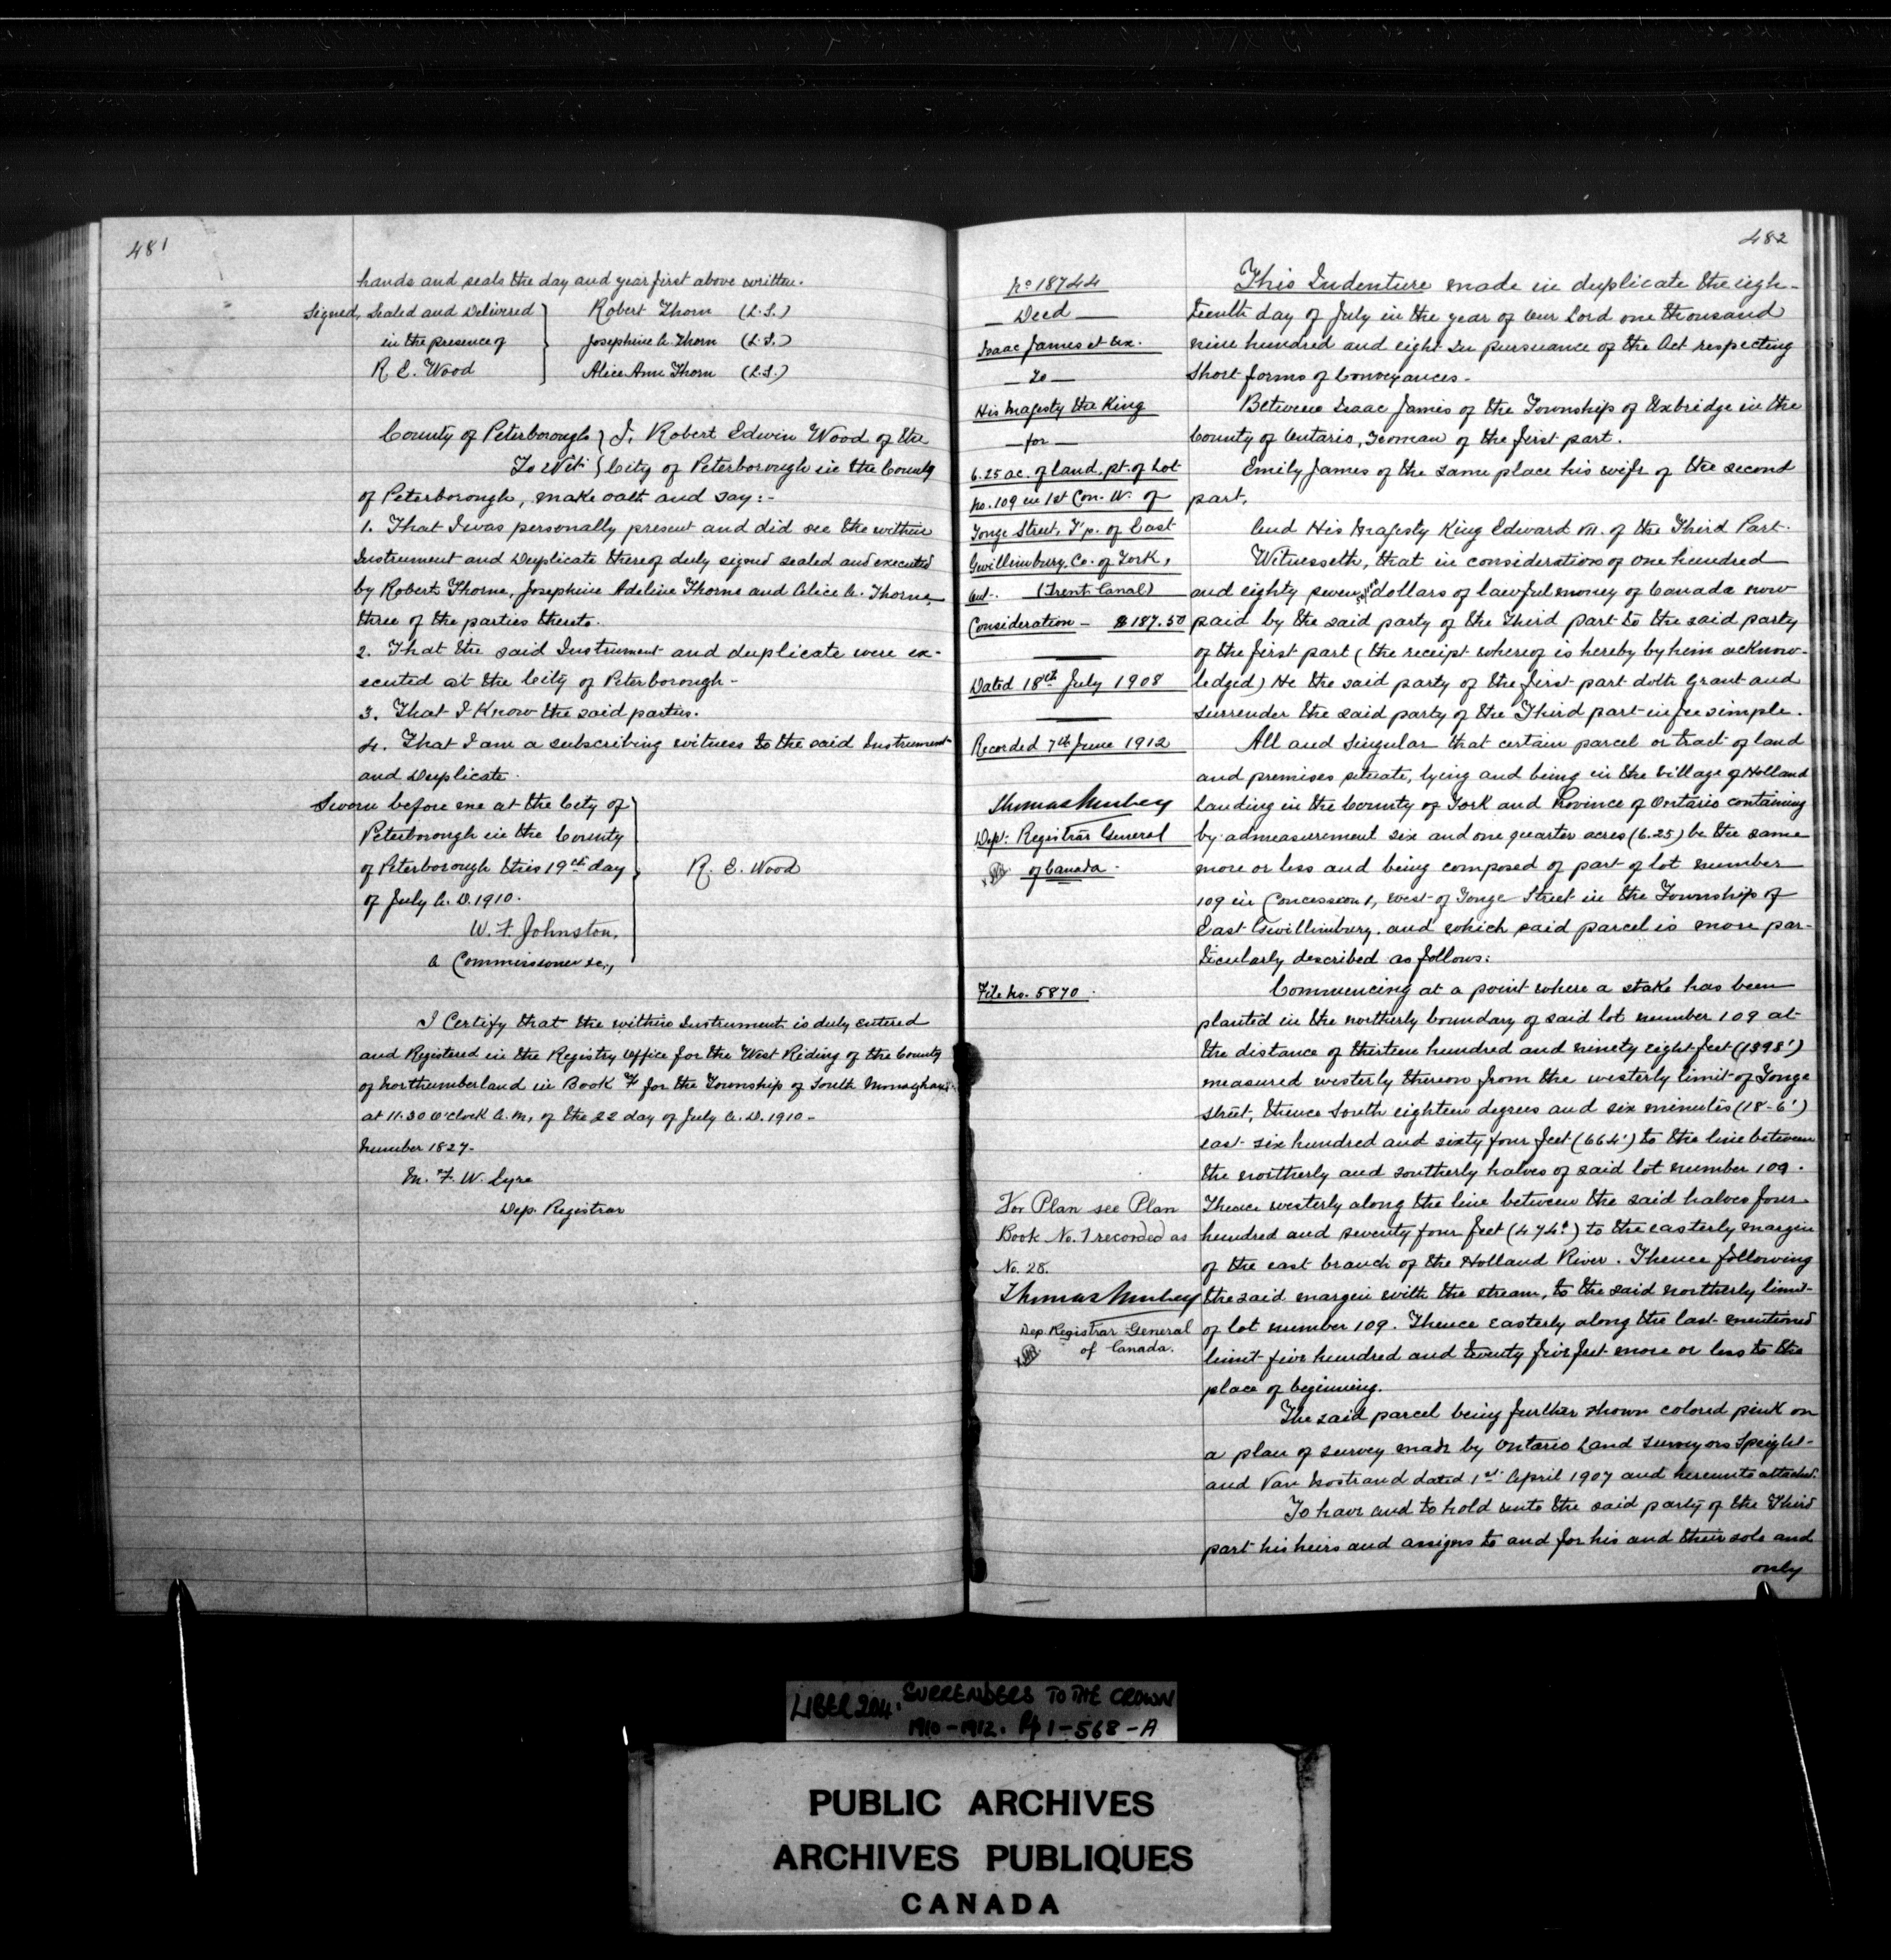 481
hands and seals the day and year first above written.
Signed, Sealed and Delivered } Robert Thorn (L.S.)
in the presence of } Josephine A. Thorn (L.S.)
R. E. Wood } Alice Ann Thorn (L.S.)
County of Peterborough } I, Robert Edwin Wood of the
To Wit: } City of Peterborough in the County
of Peterborough, make oath and say:-
1. That I was personally present and did see the within
Instrument and Duplicate thereof duly signed sealed and executed
by Robert Thorne, Josephine Adeline Thorne and Alice A. Thorne,
three of the parties thereto.
2. That the said Instrument and duplicate were ex-
ecuted at the City of Peterborough-
3. That I know the said parties.
4. That I am a subscribing witness to the said Instrument
and Duplicate.
Sworn before me at the City of
Peterborough in the County
of Peterborough this 19th day } R. E. Wood
of July A. D. 1910.
W. F. Johnston,
A Commissioner &c.,
I Certify that the within Instrument is duly entered
and Registered in the Registry Office for the West Riding of the County
of Northumberland in Book F for the Township of South Monaghan
at 11.30 O'clock A. M, of the 22 day of July A. D. 1910-
Number 1827-
M. F. W. Eyre
Dep. Registrar
482
No 18744
Deed
Isaac James et Ux.
- To -
His Majesty the King
- for -
6.25 ac. of land, pt. of Lot
No. 109 in 1st Con. W. of
Yonge Street, T'p. of East
Gwillimbury, Co. of York,
Ont. (Trent Canal)
Consideration - $187.50
Dated 18th July 1908
Recorded 7th June 1912
Thomas Mulvey
Dep: Registrar General
of Canada.
File No. 5870.
For Plan see Plan
Book No. 7 recorded as
No. 28.
Thomas Mulvey
Dep Registrar General
of Canada.
This Indenture made in duplicate the eigh-
teenth day of July in the year of Our Lord one thousand
nine hundred and eight In pursuance of the Act respecting
Short forms of Conveyances-
Between Isaac James of the Township of Uxbridge in the
County of Ontario, Yeoman of the first part.
Emily James of the same place his wife of the second
part,
And His Majesty King Edward VII. of the Third Part.
Witnesseth, that in consideration of One hundred
and eighty seven 50/100 dollars of lawful money of Canada now
paid by the said party of the Third part to the said party
of the first part (the receipt whereof is hereby by him acknow-
ledged) He the said party of the first part doth Grant and
surrender the said party of the Third part in fee simple.
All and Singular that certain parcel or tract of land
and premises situate, lying and being in the Village of Holland
Landing in the County of York and Province of Ontario containing
by admeasurement six and one quarter acres (6.25) be the same
more or less and being composed of part of lot number
109 in Concession 1, west of Yonge Street in the Township of
East Gwillimbury. and which said parcel is more par-
ticularly described as follows:
Commencing at a point where a stake has been
planted in the northerly boundary of said lot number 109 at
the distance of thirteen hundred and ninety eight feet (1398')
measured westerly thereon from the westerly limit of Yonge
street, thence South eighteen degrees and six minutes (18-6')
east six hundred and sixty four feet (664') to the line between
the northerly and southerly halves of said lot number 109.
Thence westerly along the line between the said halves four
hundred and seventy four feet (474') to the easterly margin
of the east branch of the Holland River. Thence following
the said margin with the stream, to the said northerly limit
of lot number 109. Thence easterly along the last mentioned
limit five hundred and twenty five feet more or less to the
place of beginning.
The said parcel being further shown colored pink on
a plan of survey made by Ontario Land Surveyors Speight
and Van Nostrand dated 1st April 1907 and hereunto attached.
To have and to hold unto the said party of the Third
part his heirs and assigns to and for his and their sole and
only
LIBER 204. SURRENDERS TO THE CROWN
1910-1912. Pp 1-568-A
PUBLIC ARCHIVES
ARCHIVES PUBLIQUES
CANADA